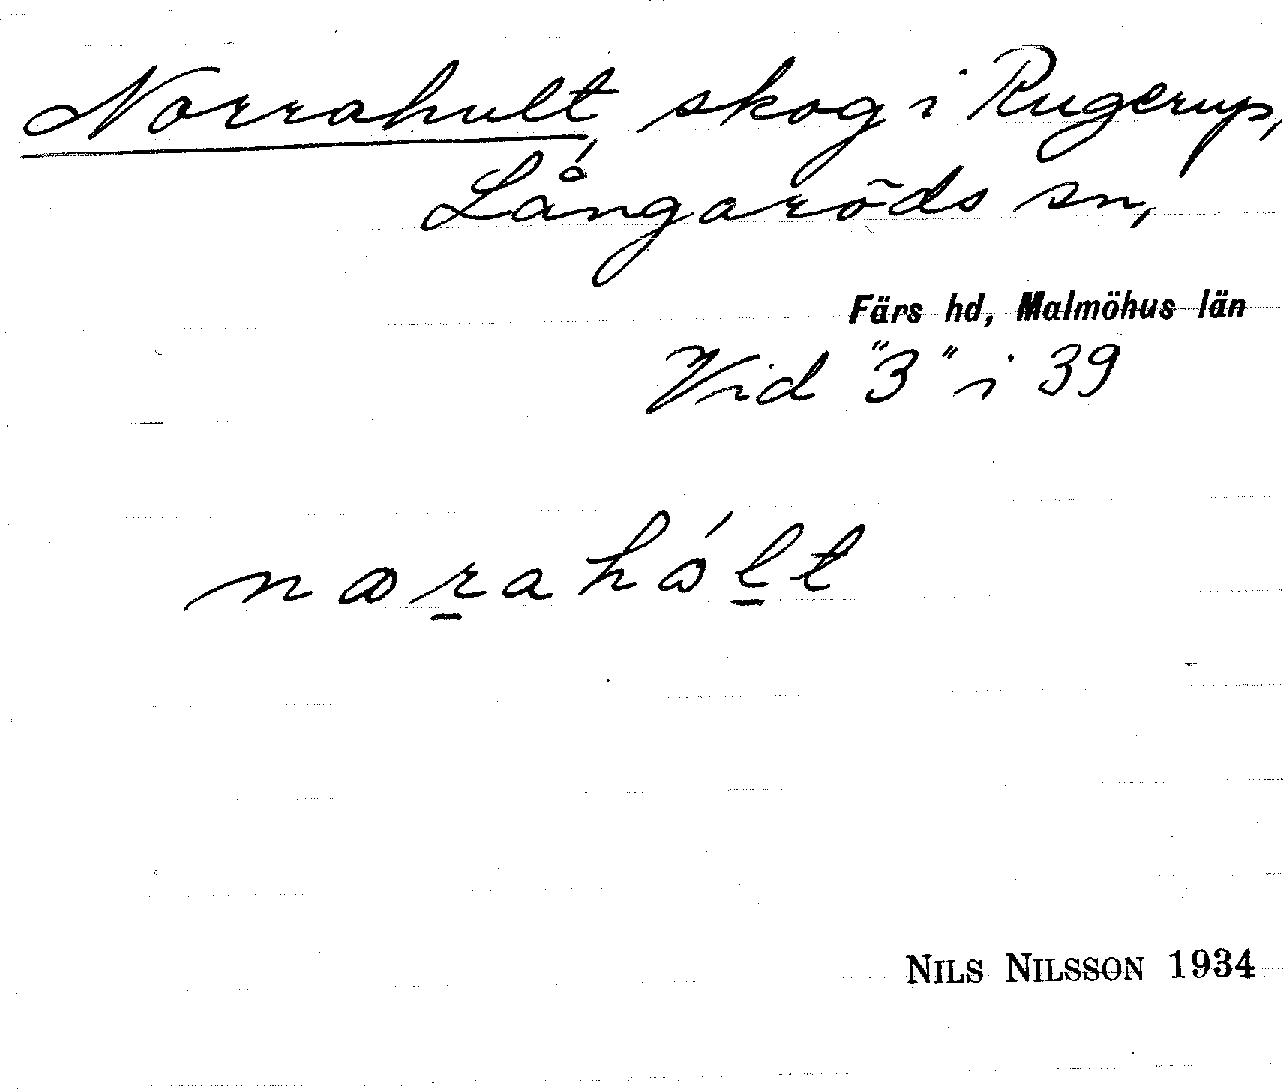 Norrahult, skog i Rugerup,
Långaröds sn,
Färs hd, Malmöhus län
Vid "3" i 39
nꝏr̲ahá̊l̲t
NILS NILSSON 1934